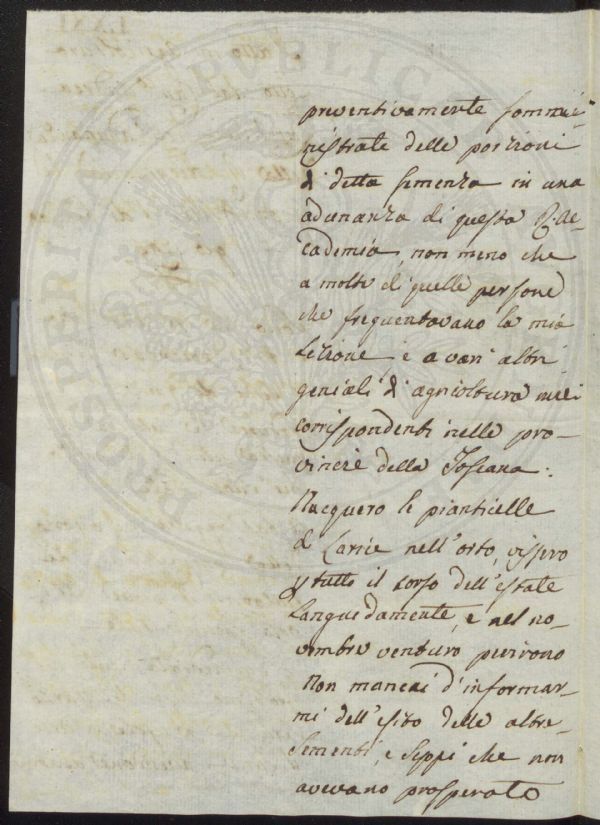 preventivamente sommi-
nistrate delle porzioni
di detta semenza in una
adunanza di questa R. Ac-
cademia, non meno che
a molte di quelle persone
che frequentavano la mia
Lezione, e a varj altri
geniali di agricoltura miei
corrispondenti nelle pro-
vincie della Toscana.
Nacquero le pianticelle
di Larice nell'orto, vissero
p tutto il corso dell'estate
Languidamente, e nel no-
vembre venturo perirono
Non mancai d'informar-
mi dell'esito delle altre
sementi, e seppi che non
avevano prosperato
PROSPERITATI PUBLICAE